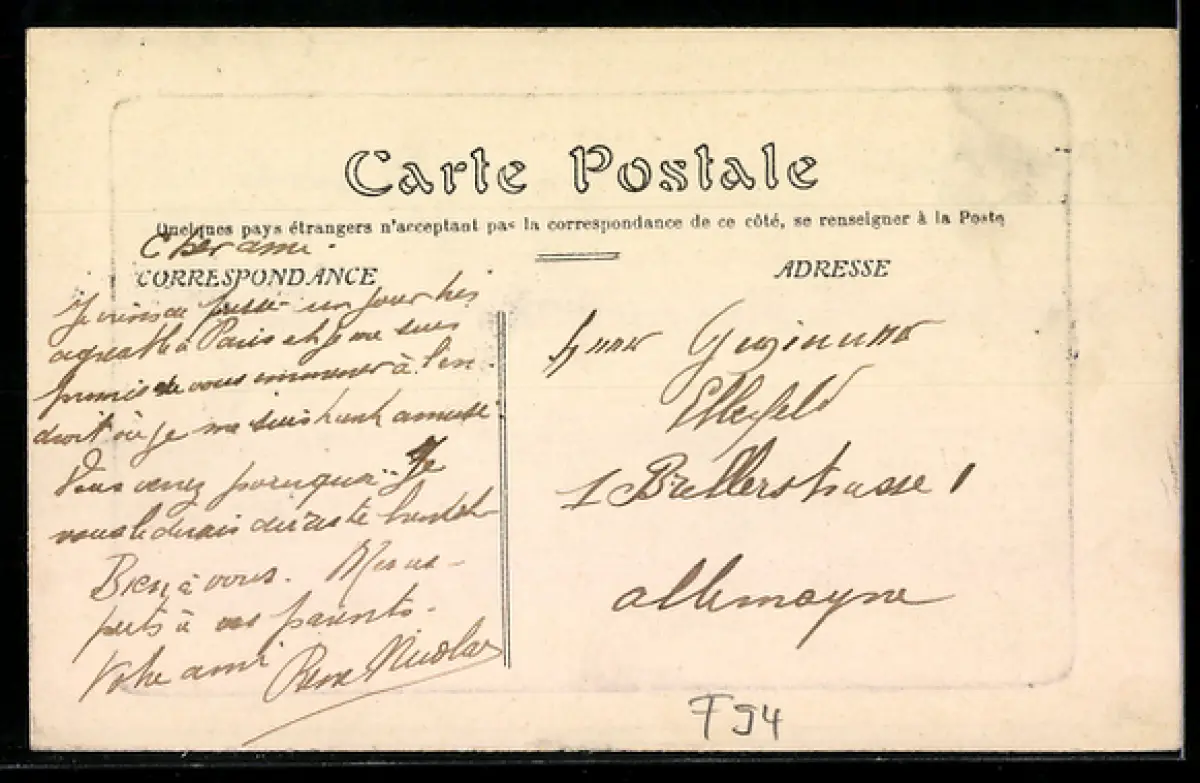 Carte Postale
Quelques pays étrangers n'acceptant pas la correspondance de ce côté, se renseigner à la Poste
Cher ami.
CORRESPONDANCE
ADRESSE
Je viens de passer un jour très
agréable à Paris et je me suis
promis de vous emmener à l'en-
droit où je me suis tant amusé.
Vous venez pourquoi. Je
vous le
Bien à vous. Mes res-
pects à vos parents.
Votre ami René Nicolas
Elberfeld
1 strasse 1
allemagne
F 94